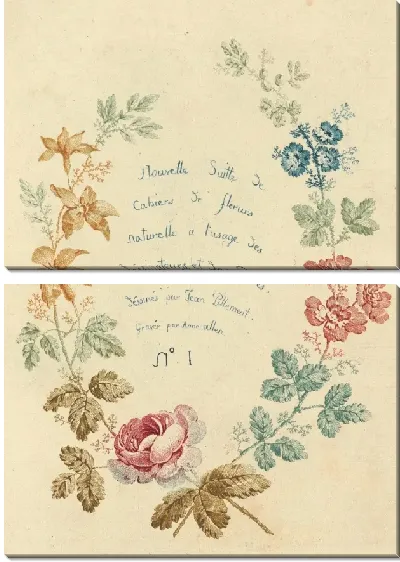 Nouvelle Suitte de
Cahiers de fleurs
naturelle a l'usage des
et
Déssinés par Jean Pillement.
Gravée par Anne Allen
N° 1